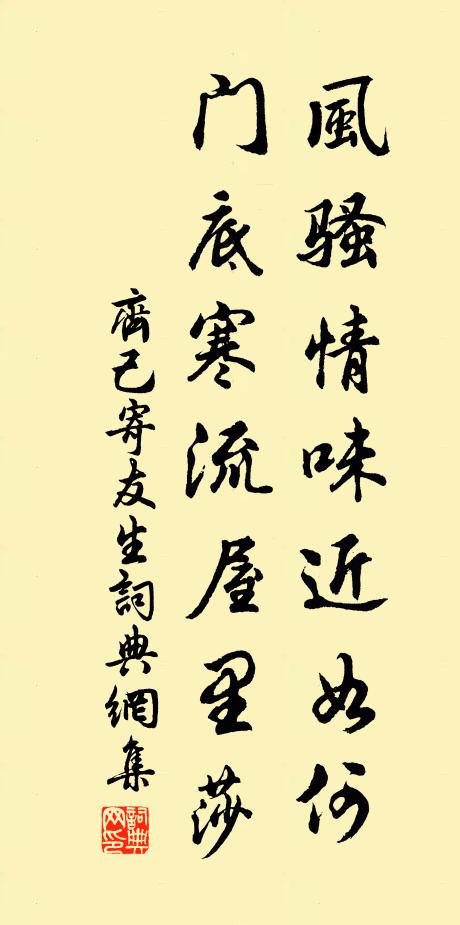 風騷情味近如何
門底寒流屋里莎
齊己寄友生詞典網集
詞典網印